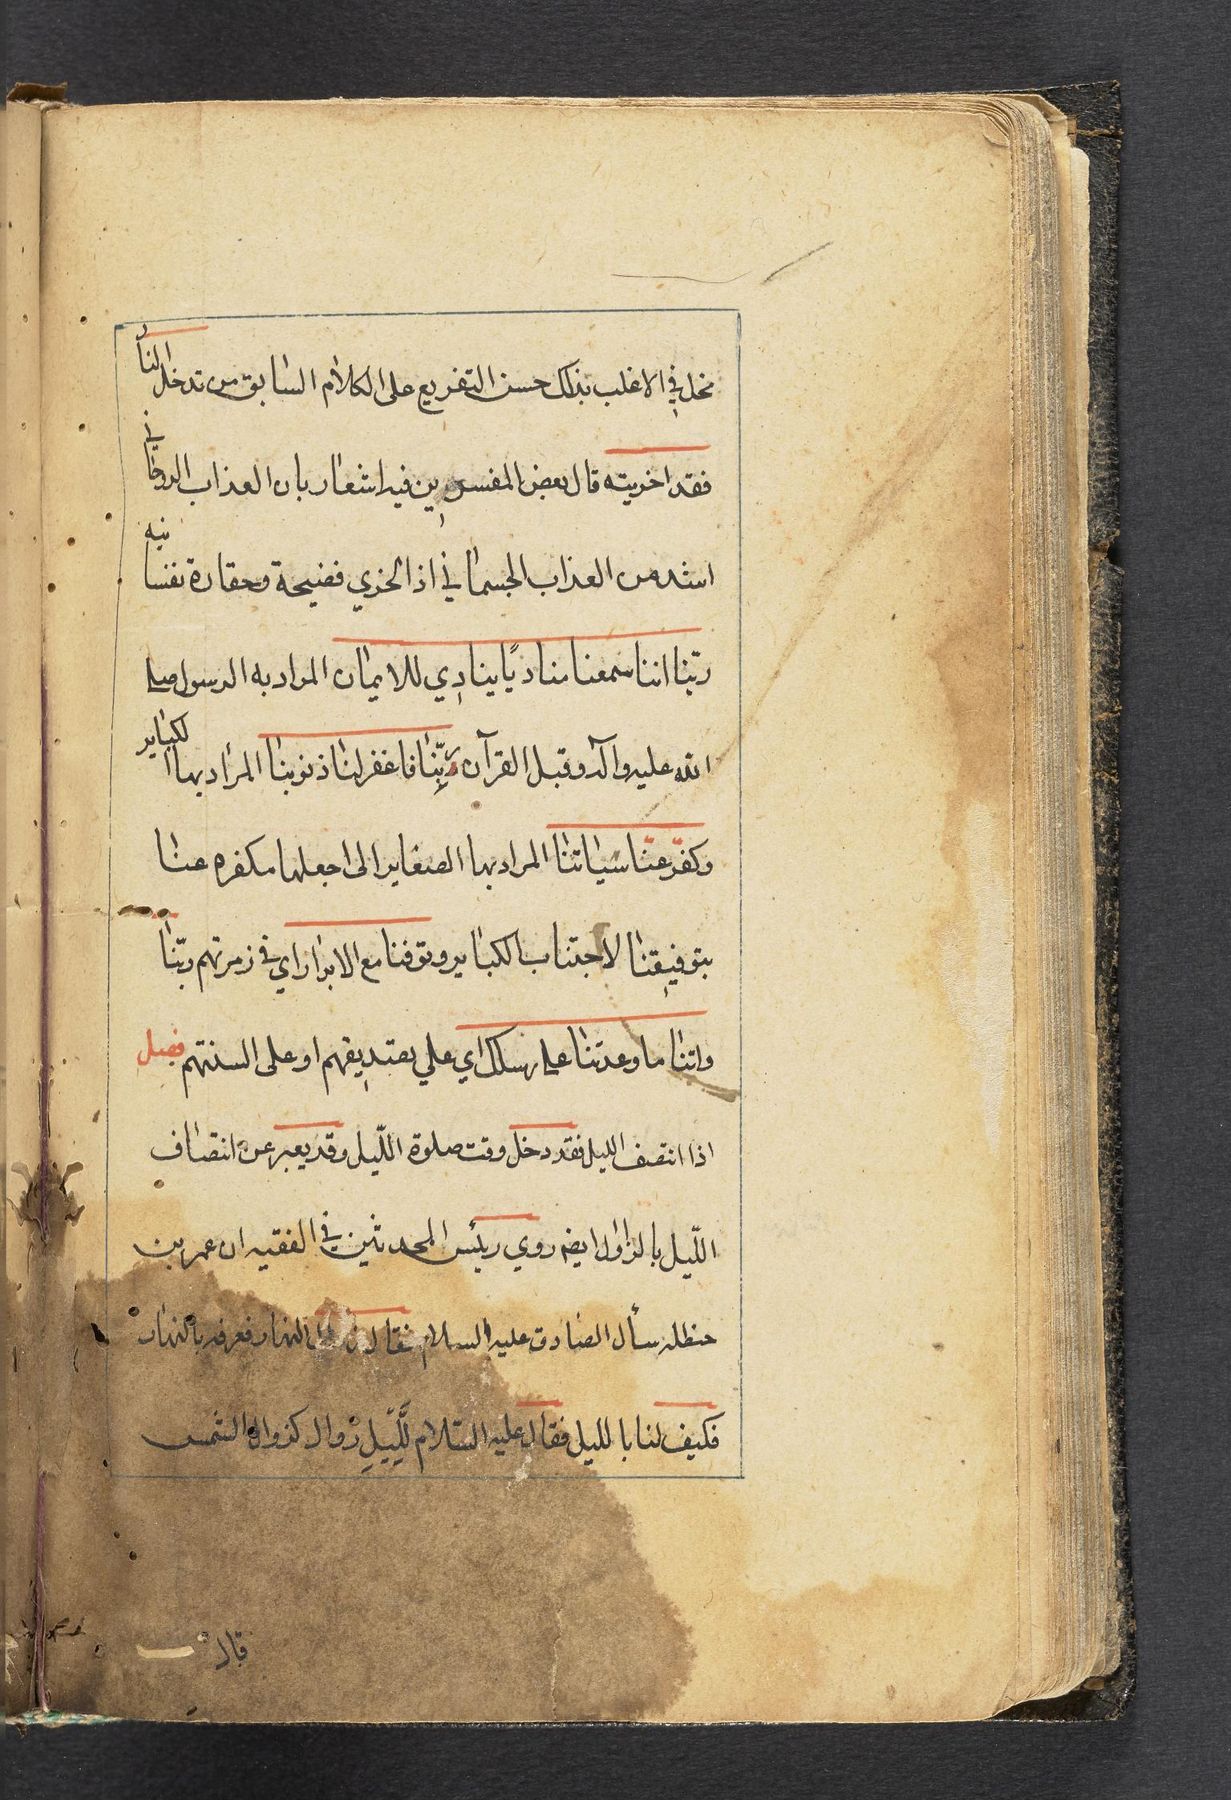 مخل في الاغلب بذلك حسن التفريع على الكلام السابق من تدخل النار
فقد اخزيته قال بعض المفسرين فيه اشعار بان العذاب الروحاني
اشد من العذاب الجسماني اذ الخزي فضيحة وحقارة نفسانيه
ربّنا اننا سمعنا مناديًا ينادي للايمان المراد به الرسول صلى
الله عليه وآله وقيل القرآن ربّنا فاغفر لنا ذنوبنا المراد بها الكباير
وكفّر عنّا سيئاتنا المراد بها الصغاير اي اجعلها مكفره عنا
بتوفيقنا لاجتناب الكباير وتوفنا مع الابرار اي في زمرتهم ربّنا
واتنا ما وعدتنا على رسلك اي على تصديقهم او على السنتهم فصل
اذا انتصف الليل فقد دخل وقت صلوة اللّيل وقد يعبر عن انتصاف
اللّيل بالزاول ايضا روي رئيس المحدثين في الفقيه ان عمر بن
حنظله سأل الصادق عليه السلام فقال زوال النهار نعرفه بالنهار
فكيف لنا بالليل فقال عليه السّلام للّيل زوال كزوال الشمس
قال